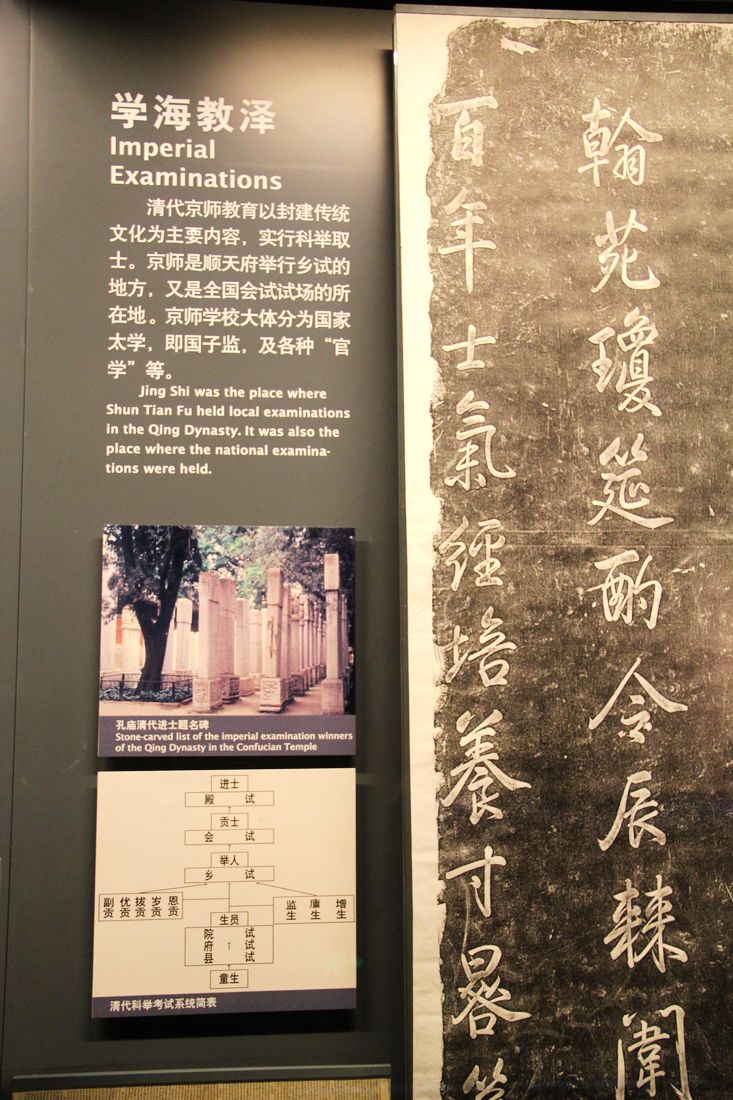 学海教泽
Imperial
Examinations
清代京师教育以封建传统
文化为主要内容，实行科举取
士。京师是顺天府举行乡试的
地方，又是全国会试试场的所
在地。京师学校大体分为国家
太学，即国子监，及各种“官
学”等。
Jing Shi was the place where
Shun Tian Fu held local examinations
in the Qing Dynasty. It was also the
place where the national examina-
tions were held.
孔庙清代进士题名碑
Stone-carved list of the imperial examination winners
of the Qing Dynasty in the Confucian Temple
进士
殿 试
贡士
会 试
举人
乡 试
副 优 拔 岁 恩
贡 贡 贡 贡 贡
监 廪 增
生 生 生
生员
院 试
府 ↑ 试
县 试
童生
清代科举考试系统简表
翰苑瓊筵酌令辰棘闈
百年士氣經培養寸晷